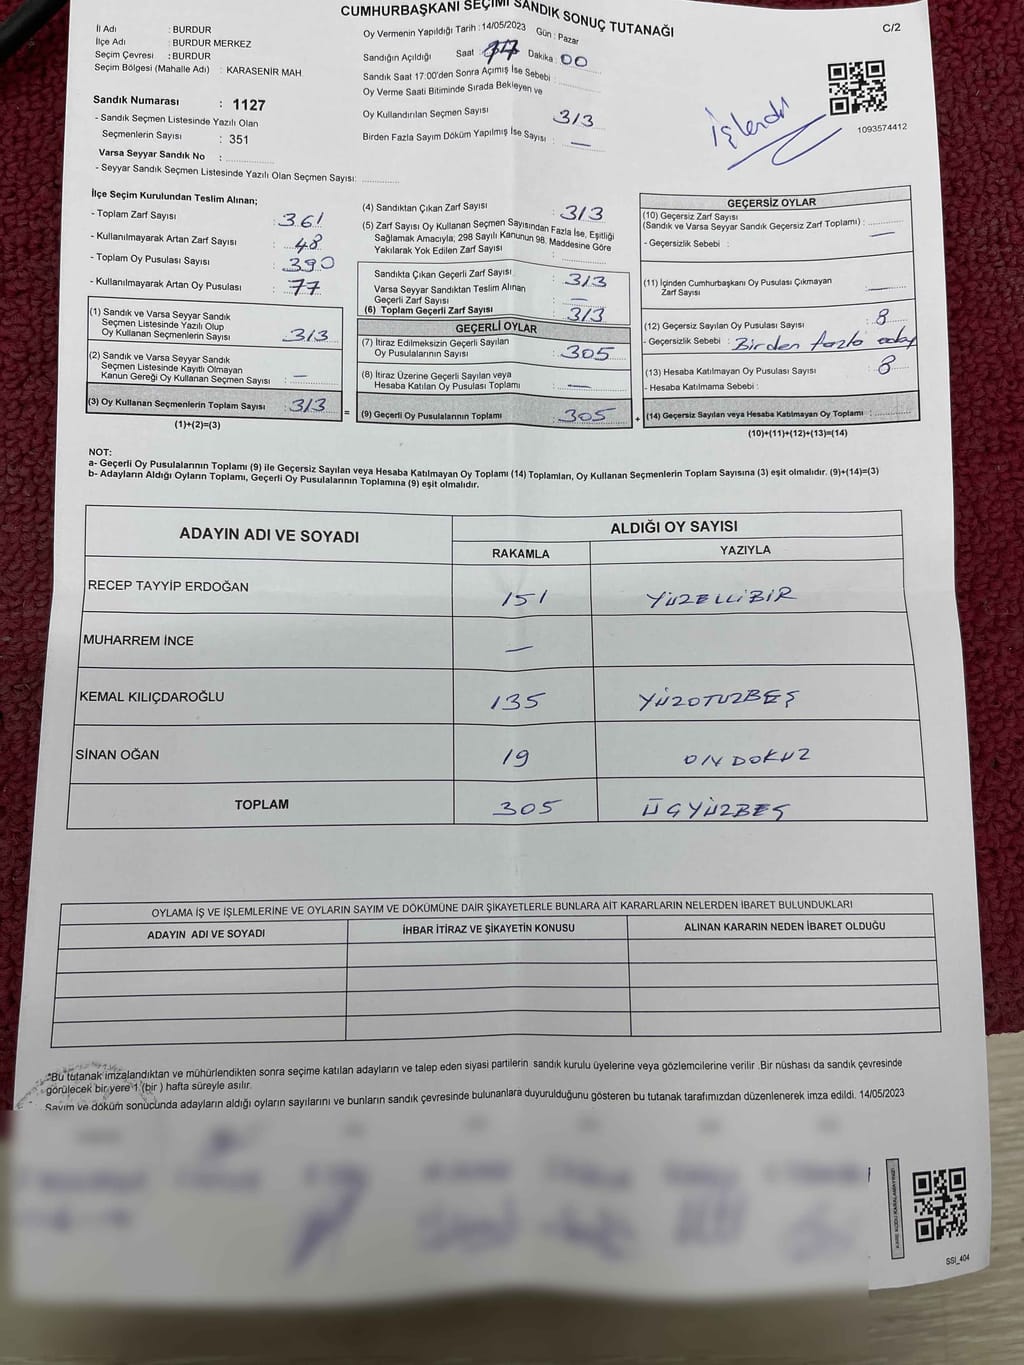 CUMHURBAŞKANI SEÇİMİ SANDIK SONUÇ TUTANAĞI
C/2
İl Adı : BURDUR
İlçe Adı : BURDUR MERKEZ
Seçim Çevresi : BURDUR
Seçim Bölgesi (Mahalle Adı) : KARASENİR MAH.
Sandık Numarası : 1127
- Sandık Seçmen Listesinde Yazılı Olan
Seçmenlerin Sayısı : 351
Varsa Seyyar Sandık No :
- Seyyar Sandık Seçmen Listesinde Yazılı Olan Seçmen Sayısı:
Oy Vermenin Yapıldığı Tarih : 14/05/2023 Gün : Pazar
Sandığın Açıldığı Saat : 17 Dakika : 00
Sandık Saat 17:00'den Sonra Açımış İse Sebebi :
Oy Verme Saati Bitiminde Sırada Bekleyen ve
Oy Kullandırılan Seçmen Sayısı : 313
Birden Fazla Sayım Döküm Yapılmış İse Sayısı : —
İşlendi
1093574412
İlçe Seçim Kurulundan Teslim Alınan;
- Toplam Zarf Sayısı : 361
- Kullanılmayarak Artan Zarf Sayısı : 48
- Toplam Oy Pusulası Sayısı : 390
- Kullanılmayarak Artan Oy Pusulası : 77
(1) Sandık ve Varsa Seyyar Sandık
Seçmen Listesinde Yazılı Olup
Oy Kullanan Seçmenlerin Sayısı : 313
(2) Sandık ve Varsa Seyyar Sandık
Seçmen Listesinde Kayıtlı Olmayan
Kanun Gereği Oy Kullanan Seçmen Sayısı : —
(3) Oy Kullanan Seçmenlerin Toplam Sayısı : 313
(1)+(2)=(3)
(4) Sandıktan Çıkan Zarf Sayısı : 313
(5) Zarf Sayısı Oy Kullanan Seçmen Sayısından Fazla İse, Eşitliği
Sağlamak Amacıyla; 298 Sayılı Kanunun 98. Maddesine Göre
Yakılarak Yok Edilen Zarf Sayısı :
Sandıkta Çıkan Geçerli Zarf Sayısı : 313
Varsa Seyyar Sandıktan Teslim Alınan
Geçerli Zarf Sayısı : —
(6) Toplam Geçerli Zarf Sayısı : 313
GEÇERLİ OYLAR
(7) İtiraz Edilmeksizin Geçerli Sayılan
Oy Pusulalarının Sayısı : 305
(8) İtiraz Üzerine Geçerli Sayılan veya
Hesaba Katılan Oy Pusulası Toplamı : —
= (9) Geçerli Oy Pusulalarının Toplamı : 305 +
GEÇERSİZ OYLAR
(10) Geçersiz Zarf Sayısı
(Sandık ve Varsa Seyyar Sandık Geçersiz Zarf Toplamı) : —
- Geçersizlik Sebebi :
(11) İçinden Cumhurbaşkanı Oy Pusulası Çıkmayan
Zarf Sayısı : —
(12) Geçersiz Sayılan Oy Pusulası Sayısı : 8
- Geçersizlik Sebebi : Birden fazla aday
(13) Hesaba Katılmayan Oy Pusulası Sayısı : 8
- Hesaba Katılmama Sebebi :
(14) Geçersiz Sayılan veya Hesaba Katılmayan Oy Toplamı :
(10)+(11)+(12)+(13)=(14)
NOT:
a- Geçerli Oy Pusulalarının Toplamı (9) ile Geçersiz Sayılan veya Hesaba Katılmayan Oy Toplamı (14) Toplamları, Oy Kullanan Seçmenlerin Toplam Sayısına (3) eşit olmalıdır. (9)+(14)=(3)
b- Adayların Aldığı Oyların Toplamı, Geçerli Oy Pusulalarının Toplamına (9) eşit olmalıdır.
ADAYIN ADI VE SOYADI ALDIĞI OY SAYISI
RAKAMLA YAZIYLA
RECEP TAYYİP ERDOĞAN 151 YÜZELLİBİR
MUHARREM İNCE —
KEMAL KILIÇDAROĞLU 135 YÜZOTUZBEŞ
SİNAN OĞAN 19 ONDOKUZ
TOPLAM 305 ÜÇYÜZBEŞ
OYLAMA İŞ VE İŞLEMLERİNE VE OYLARIN SAYIM VE DÖKÜMÜNE DAİR ŞİKAYETLERLE BUNLARA AİT KARARLARIN NELERDEN İBARET BULUNDUKLARI
ADAYIN ADI VE SOYADI İHBAR İTİRAZ VE ŞİKAYETİN KONUSU ALINAN KARARIN NEDEN İBARET OLDUĞU
*Bu tutanak imzalandıktan ve mühürlendikten sonra seçime katılan adayların ve talep eden siyasi partilerin sandık kurulu üyelerine veya gözlemcilerine verilir .Bir nüshası da sandık çevresinde
görülecek bir yere 1 (bir ) hafta süreyle asılır.
Sayım ve döküm sonucunda adayların aldığı oyların sayılarını ve bunların sandık çevresinde bulunanlara duyurulduğunu gösteren bu tutanak tarafımızdan düzenlenerek imza edildi. 14/05/2023
KARE KODU KARALAMAYINIZ!
SSİ_404